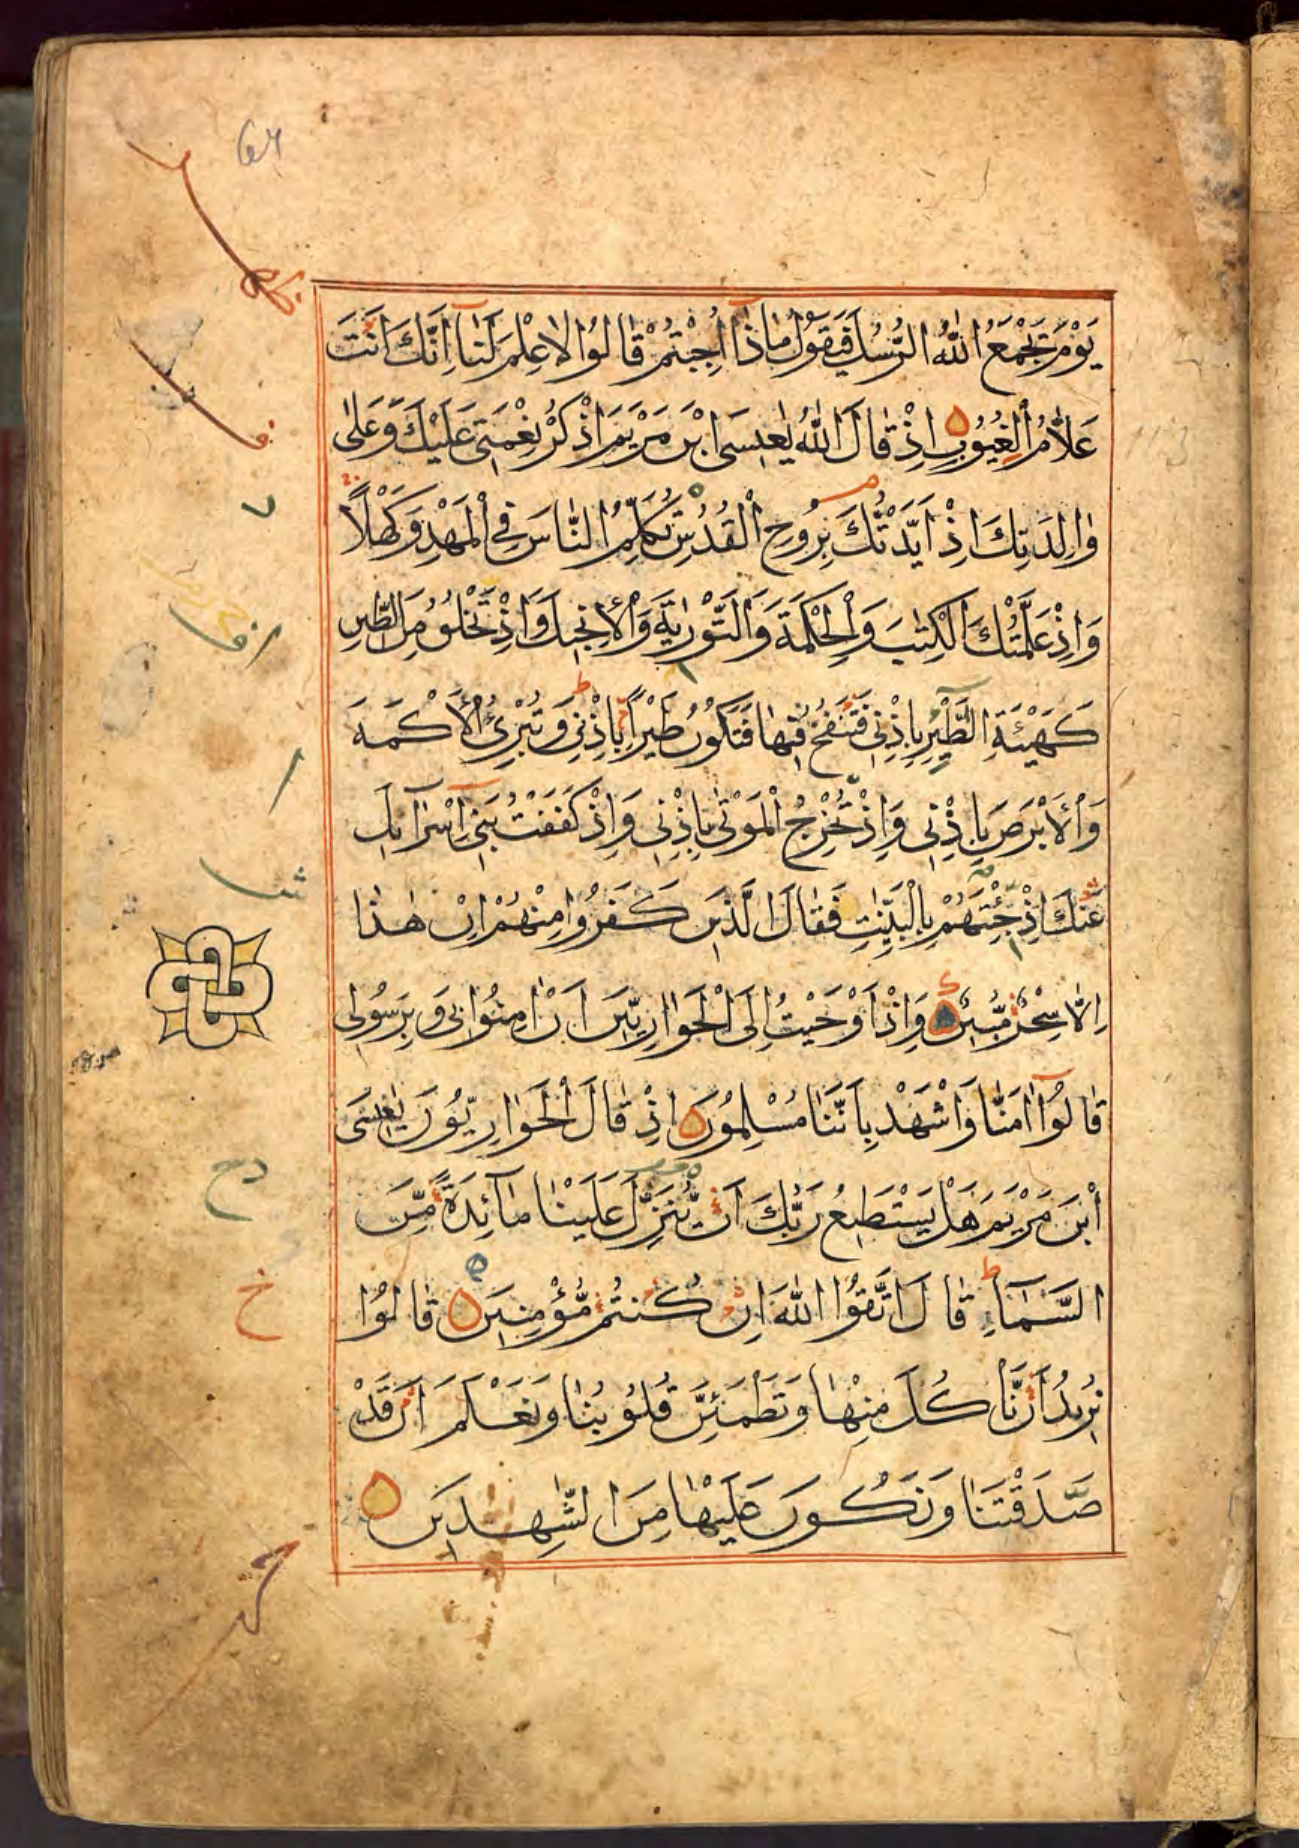 يَوْمَ يَجْمَعُ اللّٰهُ الرُّسُلَ فَيَقُولُ مَاذَا اُجِبْتُمْ قَالُوا لَا عِلْمَ لَنَا اِنَّكَ اَنْتَ
عَلَّامُ الْغُيُوبِ اِذْ قَالَ اللّٰهُ يٰعِيسَى ابْنَ مَرْيَمَ اذْكُرْ نِعْمَتِي عَلَيْكَ وَعَلٰى
وَالِدَتِكَ اِذْ اَيَّدْتُكَ بِرُوحِ الْقُدُسِ تُكَلِّمُ النَّاسَ فِي الْمَهْدِ وَكَهْلًا
وَاِذْ عَلَّمْتُكَ الْكِتٰبَ وَالْحِكْمَةَ وَالتَّوْرٰيةَ وَالْاِنْجِيلَ وَاِذْ تَخْلُقُ مِنَ الطِّينِ
كَهَيْئَةِ الطَّيْرِ بِاِذْنِي فَتَنْفُخُ فِيهَا فَتَكُونُ طَيْرًا بِاِذْنِي وَتُبْرِئُ الْاَكْمَهَ
وَالْاَبْرَصَ بِاِذْنِي وَاِذْ تُخْرِجُ الْمَوْتٰى بِاِذْنِي وَاِذْ كَفَفْتُ بَنِي اِسْرَآئِيلَ
عَنْكَ اِذْ جِئْتَهُمْ بِالْبَيِّنٰتِ فَقَالَ الَّذِينَ كَفَرُوا مِنْهُمْ اِنْ هٰذَا
اِلَّا سِحْرٌ مُّبِينٌ وَاِذْ اَوْحَيْتُ اِلَى الْحَوَارِيِّينَ اَنْ اٰمِنُوا بِي وَبِرَسُولِي
قَالُوا اٰمَنَّا وَاشْهَدْ بِاَنَّنَا مُسْلِمُونَ اِذْ قَالَ الْحَوَارِيُّونَ يٰعِيسَى
ابْنَ مَرْيَمَ هَلْ يَسْتَطِيعُ رَبُّكَ اَنْ يُّنَزِّلَ عَلَيْنَا مَآئِدَةً مِّنَ
السَّمَآءِ قَالَ اتَّقُوا اللّٰهَ اِنْ كُنْتُمْ مُّؤْمِنِينَ قَالُوا
نُرِيدُ اَنْ نَّاْكُلَ مِنْهَا وَتَطْمَئِنَّ قُلُوبُنَا وَنَعْلَمَ اَنْ قَدْ
صَدَقْتَنَا وَنَكُونَ عَلَيْهَا مِنَ الشّٰهِدِينَ